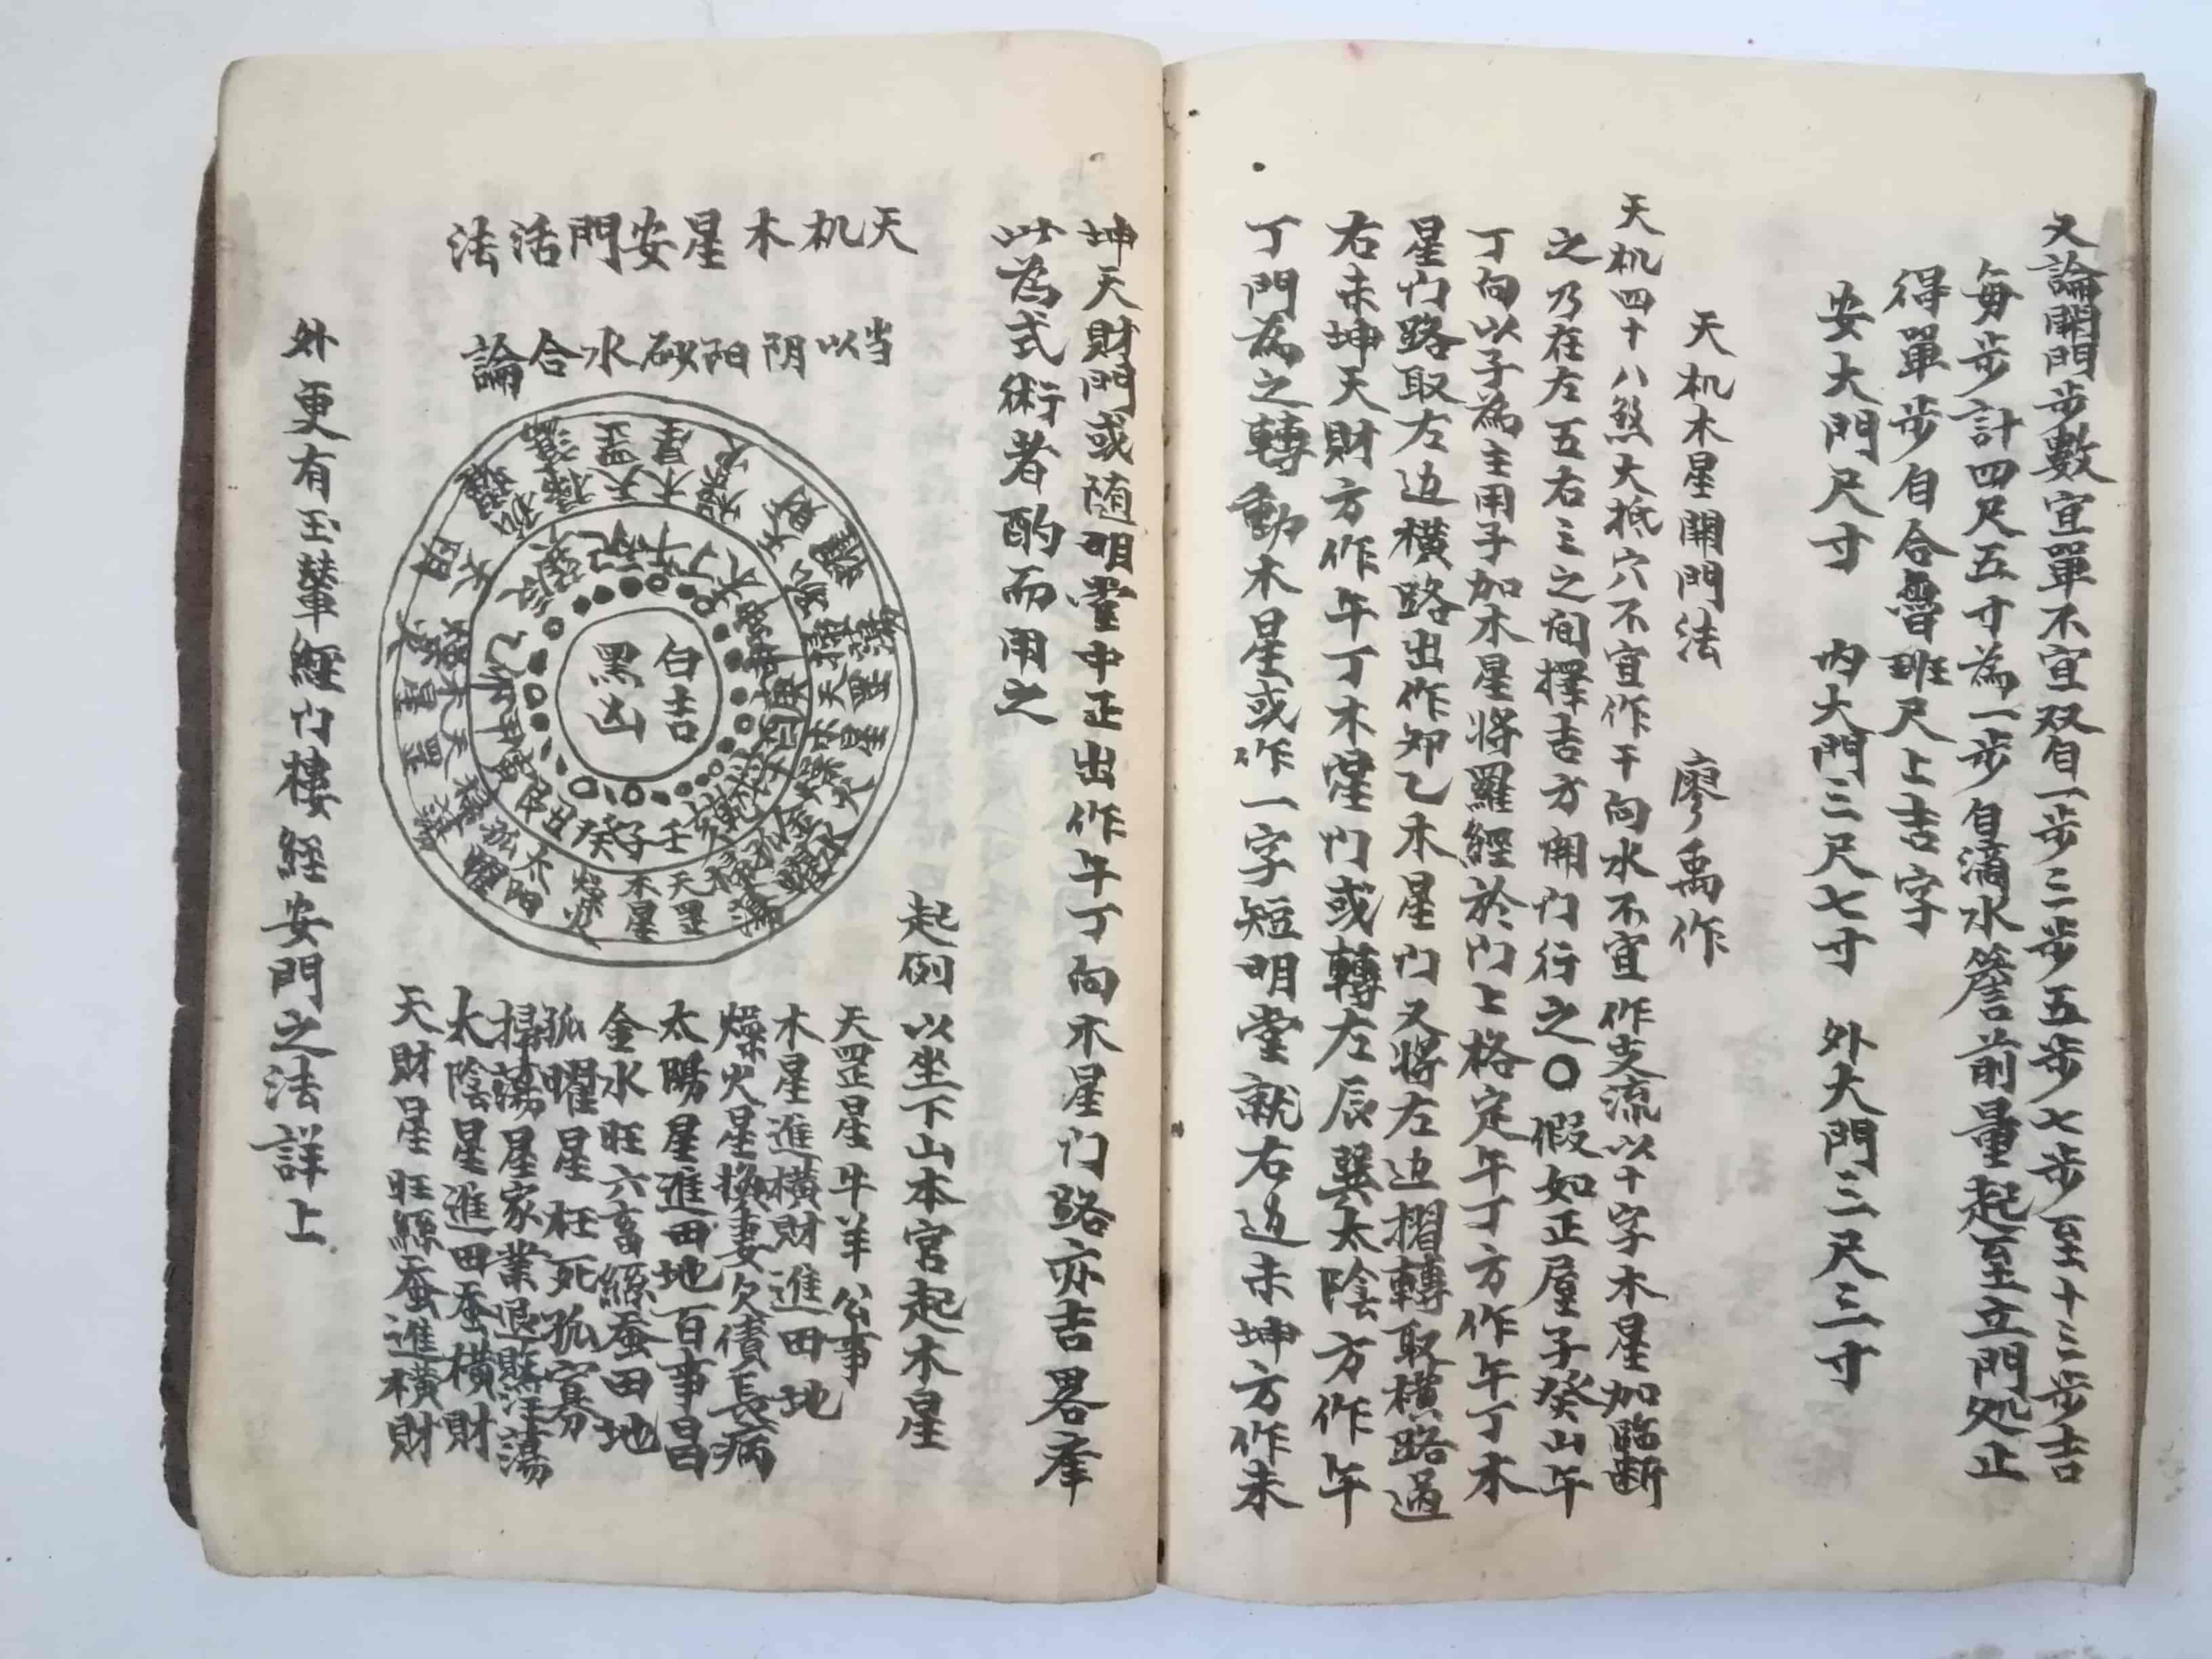 又論開門步數宜單不宜双自一步三步五步七步至十三步吉
每步計四尺五寸為一步自滴水簷前量起至立門処止
得單步自合魯班尺上吉字
安大門尺寸 内大門三尺七寸 外大門三尺三寸
天机木星開門法 廖禹作
天机四十八煞大抵穴不宜作干向水不宜作支流以十字木星加臨断
之乃在左五右三之间擇吉方開门行之〇假如正屋子癸山午
丁向以子為主用子加木星將羅經於门上格定午丁方作午丁木
星门路取左边橫路出作卯乙木星门又將左边摺轉取橫路過
右未坤天財方作午丁木星门或轉左辰巽太陰方作午
丁門為之轉動木星或作一字短明堂就右边未坤方作未
坤天財門或随明堂中正出作午丁向木星门路亦吉畧舉
此為式術者酌而用之
天机木星安門活法
当以阴阳砂水合論
白吉
黑凶
壬子癸丑
天罡
木星
燥火
太阳
孤曜
起例以坐下山本宮起木星
天罡星牛羊公事
木星進橫財進田地
燥火星換妻欠債長病
太陽星進田地百事昌
金水旺六畜絲蚕田地
孤曜星枉死孤寡
掃蕩星家業退敗汪蕩
太陰星進田蚕橫財
天財星旺絲蚕進橫財
外更有玉輦經门樓經安門之法詳上